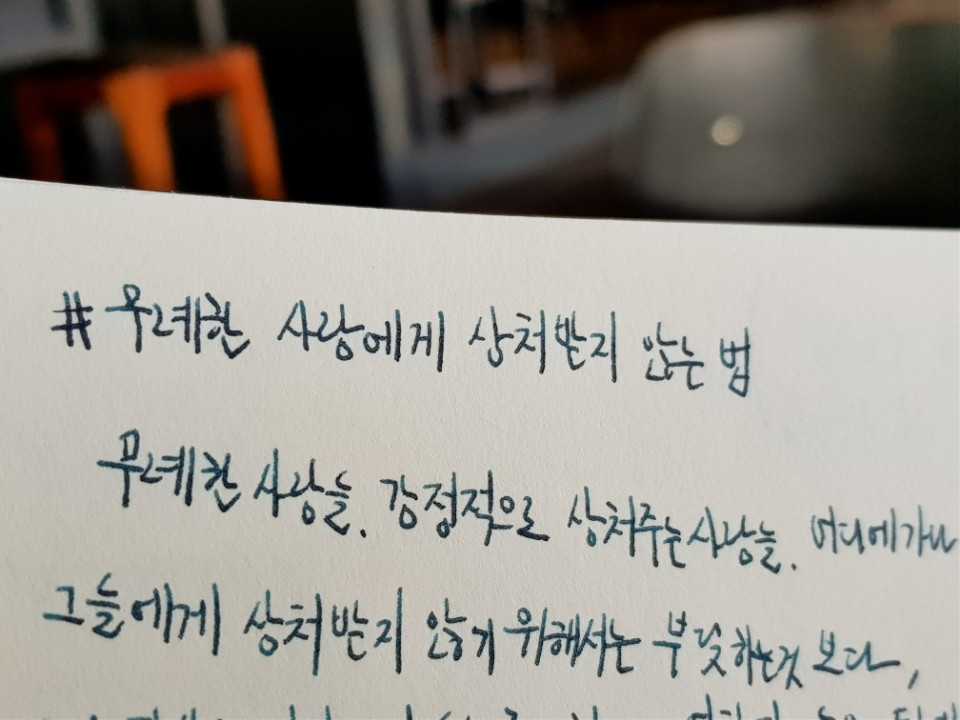 # 무례한 사람에게 상처받지 않는 법
무례한 사람들. 감정적으로 상처주는사람들. 어디에가나
그들에게 상처받지 않기 위해서는 부딪하는것 보다,